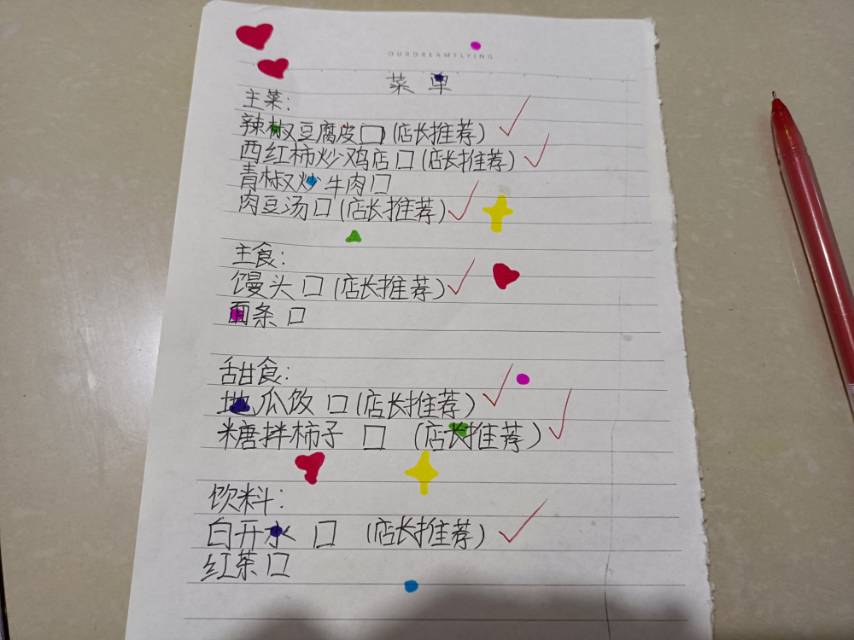 OURDREAMFLYING
菜单
主菜:
辣椒豆腐皮口(店长推荐)
西红柿炒鸡店口(店长推荐)
青椒炒牛肉口
肉豆汤口(店长推荐)
主食:
馒头口(店长推荐)
面条口
甜食:
地瓜饭口(店长推荐)
糖拌柿子口(店长推荐)
饮料:
白开水口(店长推荐)
红茶口